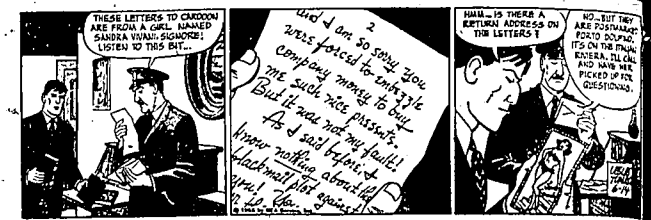 THESE LETTERS TO CARDOON
ARE FROM A GIRL NAMED
SANDRA VIVANI, SIGNORE!
LISTEN TO THIS BIT...
2
and I am so sorry you
were forced to embezzle
company money to buy
me such nice presents.
But it was not my fault!
As I said before, I
know nothing about the
blackmail plot against
you!
HMM... IS THERE A
RETURN ADDRESS ON
THE LETTERS?
NO... BUT THEY
ARE POSTMARKED
PORTO DOLFINO.
IT'S ON THE ITALIAN
RIVIERA. I'LL CALL
AND HAVE HER
PICKED UP FOR
QUESTIONING.
6-14